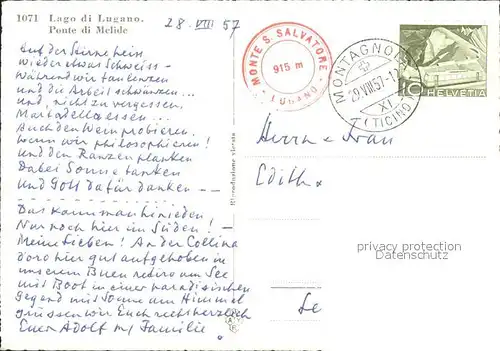 1071 Lago di Lugano.
Ponte di Melide
28. VIII 57
MONTE S. SALVATORE
915 m
LUGANO
MONTAGNOLA
29.VIII.57-12
XI
(TICINO)
10 HELVETIA
Auf der Stirne heiss
Wieder etwas Schweiss -
Während wir faulenzen
und die Arbeit schwänzen...
und, nicht zu vergessen,
Mortadella essen...
Auch den Wein probieren.
Wenn wir philosophieren!
und den Ranzen planken
Dabei Sonne tanken
Und Gott dafür danken - -
Das kann man hinieden
Nur noch hier im Süden! -
Meine Lieben! An der Collina
d'oro hier gut aufgehoben in
unserem Buen retiro am See
mit Boot in einer paradisischen
Gegend mit Sonne am Himmel
grüssen wir Euch recht herzlich
Euer Adolf m/ Familie
Riproduzione vietata
Herrn & Frau
Edith &
Le
proprietary protection
Datenschutz